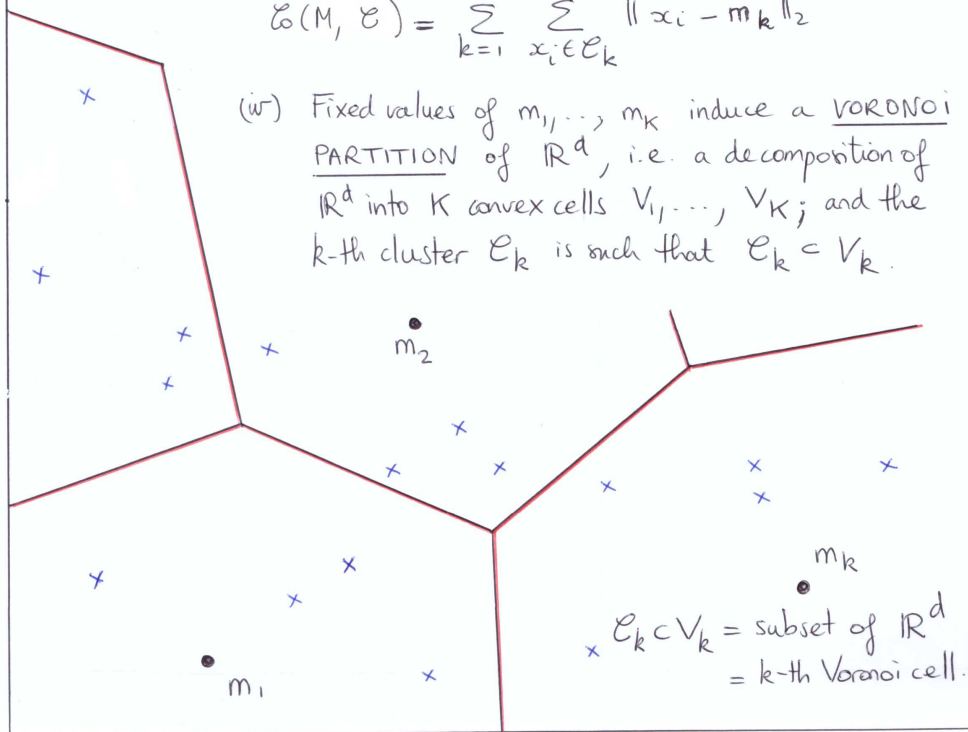 𝒞(M, 𝒞) = Σ_{k=1} Σ_{x_i ∈ 𝒞_k} ‖ x_i − m_k ‖_2
(iv) Fixed values of m_1, .., m_K induce a VORONOI
PARTITION of ℝ^d, i.e. a decomposition of
ℝ^d into K convex cells V_1, ..., V_K; and the
k-th cluster 𝒞_k is such that 𝒞_k ⊂ V_k.
m_2
m_k
𝒞_k ⊂ V_k = subset of ℝ^d
= k-th Voronoi cell.
m_1